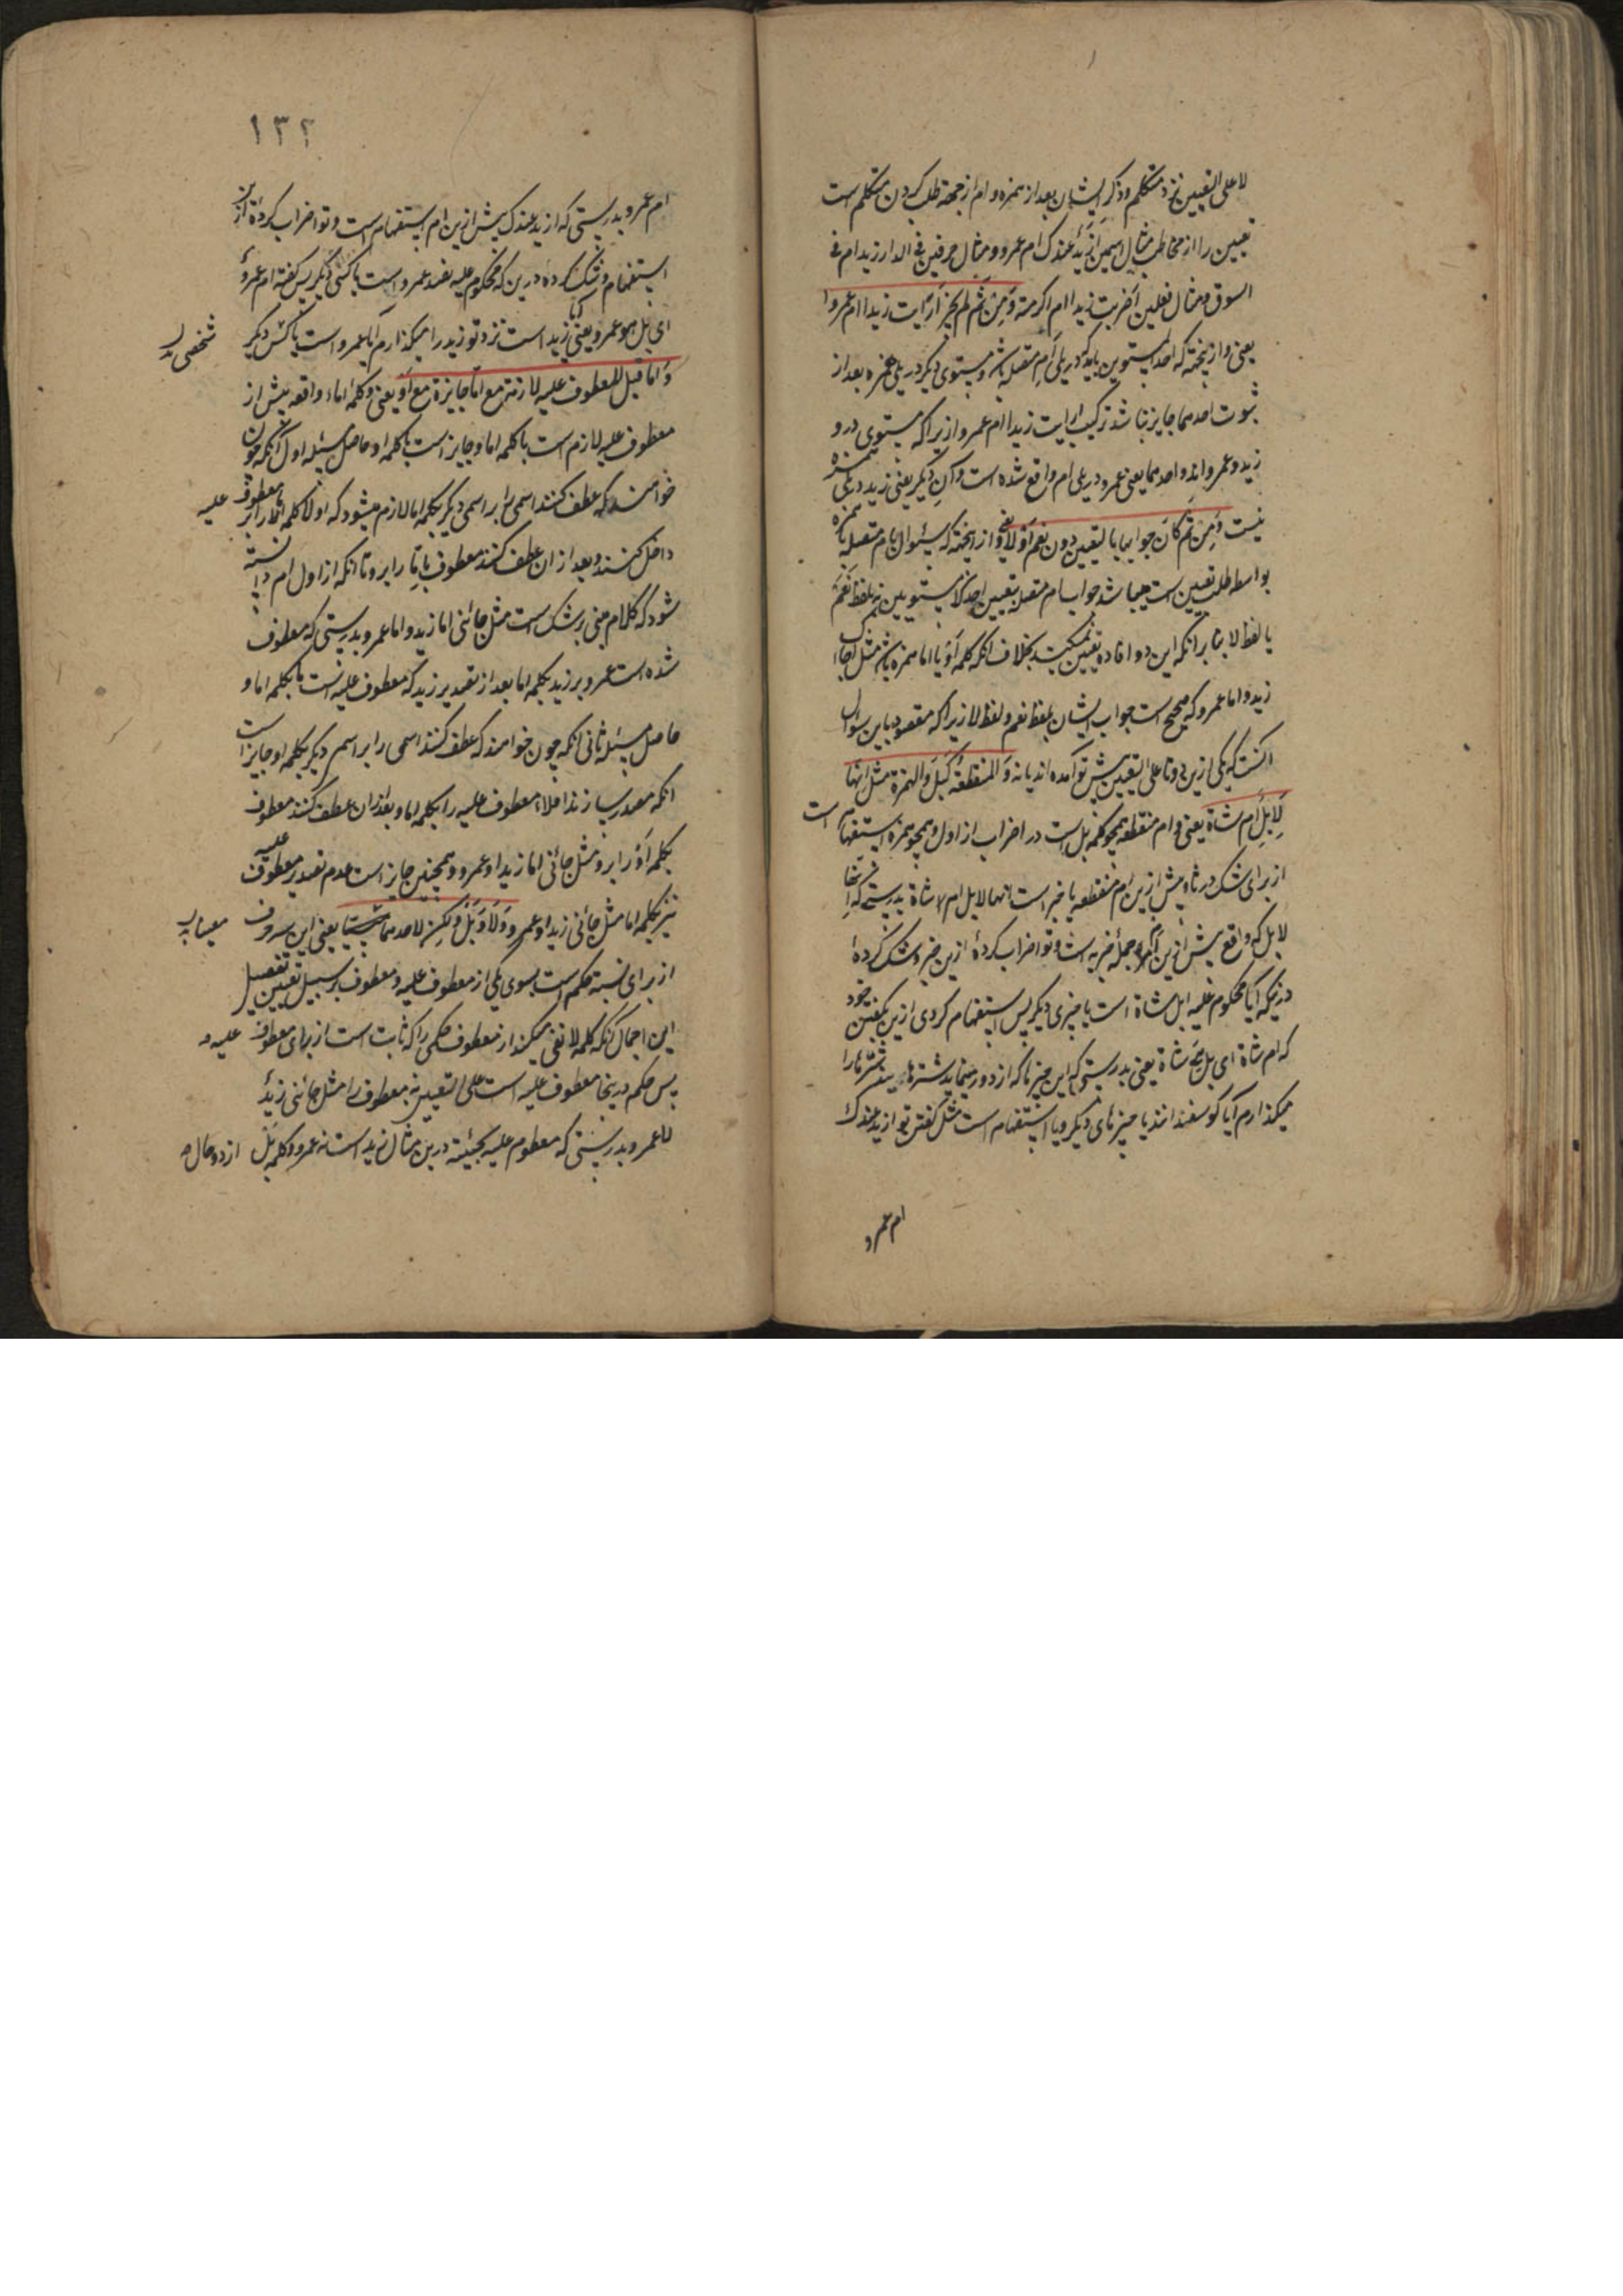 لا على التعیین نزد متکلم وذکر ایشان بعد از همزه و ام از جهة طلب کردن متکلم است
تعیین را از مخاطب مثال اسمین ازیدٌ عندک ام عمرو ومثال حرفین أفی الدار زید ام فی
السوق ومثال فعلین أضربت زیدا ام اکرمته وَمِن ثَم لم یجز أرایت زیدا ام عمروا
یعنی و از ینجهة که احد المستویین باید که در پلی ام متصله باشد و مستوی دیکر در پلی همزه بعد از
ثبوت احدهما جایز نباشد ترکیب أرایت زیدا ام عمروا زیرا که مستوی درو
زید و عمرواند و احدهما یعنی عمرو در پلی ام واقع شده است و آن دیکر یعنی زید در پلی همزه
نیست وَمِن ثَم کانَ جوابها بالتعیین دون نعم أو لا یعنی و از ینجهة که سئوال بام متصله با همزه
بواسطه طلب تعیین است میباشد جواب ام متصله بتعیین احد المستویین نه بلفظ نعم
یا لفظ لا بنا بر آنکه این دو افاده تعیین نمیکنند بخلاف آنکه کلمه أو یا اما با همزه باشد مثل اجاءک
زید و اما عمرو که صحیح است جواب ایشان بلفظ نعم ولفظ لا زیرا که مقصود باین سوال
آنست که یکی ازین دو لا على التعیین پیش تو آمده اند یا نه وَالمنقطعة کَبَل وَالهمزة مثل انها
لَاِبِل أم شاة یعنی و ام منقطعه همچو کلمه بل است در اضراب از اول و همچو همزه استفهام است
از برای شک در ثانی و پیش ازین ام منقطعه یا خبر است مثل انها لابل ام شاة بدرستی که انها
لابل که واقع پیش ازین ام جمله خبریه است و تو اضراب کردهٔ ازین خبر و شک کردهٔ
در ینکه آیا محکوم علیه ابل شاة است یا چیزی دیکر پس استفهام کردی ازین بکفتن خود
که ام شاة ای بل اهی شاة یعنی بدرستی که این چیزها که از دور مینماید شترهااند شترها را
میکذارم آیا کوسفندانند یا چیزهای دیکر و یا استفهام است مثل کفتن تو ازید عندک
ام عمرو
١٣٢
ام عمرو بدرستی که ازید عندک پیش ازین ام استفهام است و تو اضراب کردهٔ ازین
استفهام وشک کردهٔ درین که محکوم علیه عمرو است یا کسی دیکر پس کفتهٔ ام عمروٌ
ای بل أهو عمرو یعنی آیا زید است نزد تو زید را میکذارم آیا عمرو است یا کس دیکر
شخصی
وَاما قبل المعطوف علیه لازمة مع اما جایزة مع أو یعنی و کلمه اما واقعه پیش از
معطوف علیه لازم است با کلمه اما و جایز است با کلمه او حاصل مسئله اول آنکه چون
خواهند که عطف کنند اسمی را بر اسمی دیکر بکلمه اما لازم میشود که اولا کلمه اما را بر معطوف علیه
داخل کنند و بعد از ان عطف کنند معطوف باما را برو تا آنکه از اول ام دانسته
شود که کلام مبنی بر شک است مثل جائنی اما زید و اما عمرو بدرستی که معطوف
شده است عمرو بر زید بکلمه اما بعد از تصدیر زید که معطوف علیه است بکلمه اما و
حاصل مسئله ثانی آنکه چون خواهند که عطف کنند اسمی را بر اسم دیکر بکلمه او جایز است
آنکه مصدر سازند اولا معطوف علیه را بکلمه اما و بعد از ان عطف کنند معطوف
بکلمه أو را برو مثل جائنی اما زید او عمرو و همچنین جایز است عدم تصدیر معطوف علیه
نیز بکلمه اما مثل جائنی زید او عمرو وَلَا وَبَل وَلکِن لاحدهما معینا یعنی این سه حرف
معینا
از برای نسبة حکم است بسوی یکی از معطوف علیه و معطوف بر سبیل تعیین تفصیل
این اجمال آنکه کلمه لا نفی میکند از معطوف حکمی را که ثابت است از برای معطوف علیه و
پس حکم درینجا معطوف علیه است على التعیین نه معطوف را مثل جائنی زیدٌ
لا عمرو بدرستی که معطوم علیه بمجیئت درین مثال زید است نه عمرو و کلمه بَل از دو حال